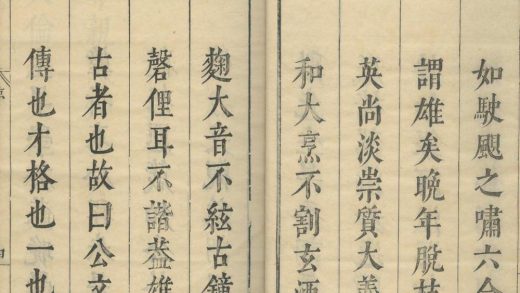 如駛颷之嘯六合
謂雄矣晚年脫
英尚淡崇質大羹
和大烹不割玄酒
麴大音不絃古鐘
磬俚耳不諧葢雄
古者也故曰公文
傳也才格也一也